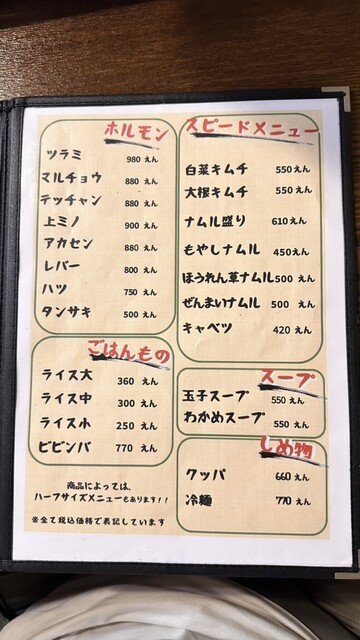 ホルモン
ツラミ 980 えん
マルチョウ 880 えん
テッチャン 880 えん
上ミノ 900 えん
アカセン 880 えん
レバー 800 えん
ハツ 750 えん
タンサキ 500 えん
ごはんもの
ライス大 360 えん
ライス中 300 えん
ライス小 250 えん
ビビンバ 770 えん
商品によっては、
ハーフサイズメニューもあります!!
※全て税込価格で表記しています
スピードメニュー
白菜キムチ 550えん
大根キムチ 550えん
ナムル盛り 610えん
もやしナムル 450えん
ほうれん草ナムル500 えん
ぜんまいナムル 500 えん
キャベツ 420 えん
スープ
玉子スープ 550えん
わかめスープ 550えん
しめ物
クッパ 660えん
冷麺 770えん